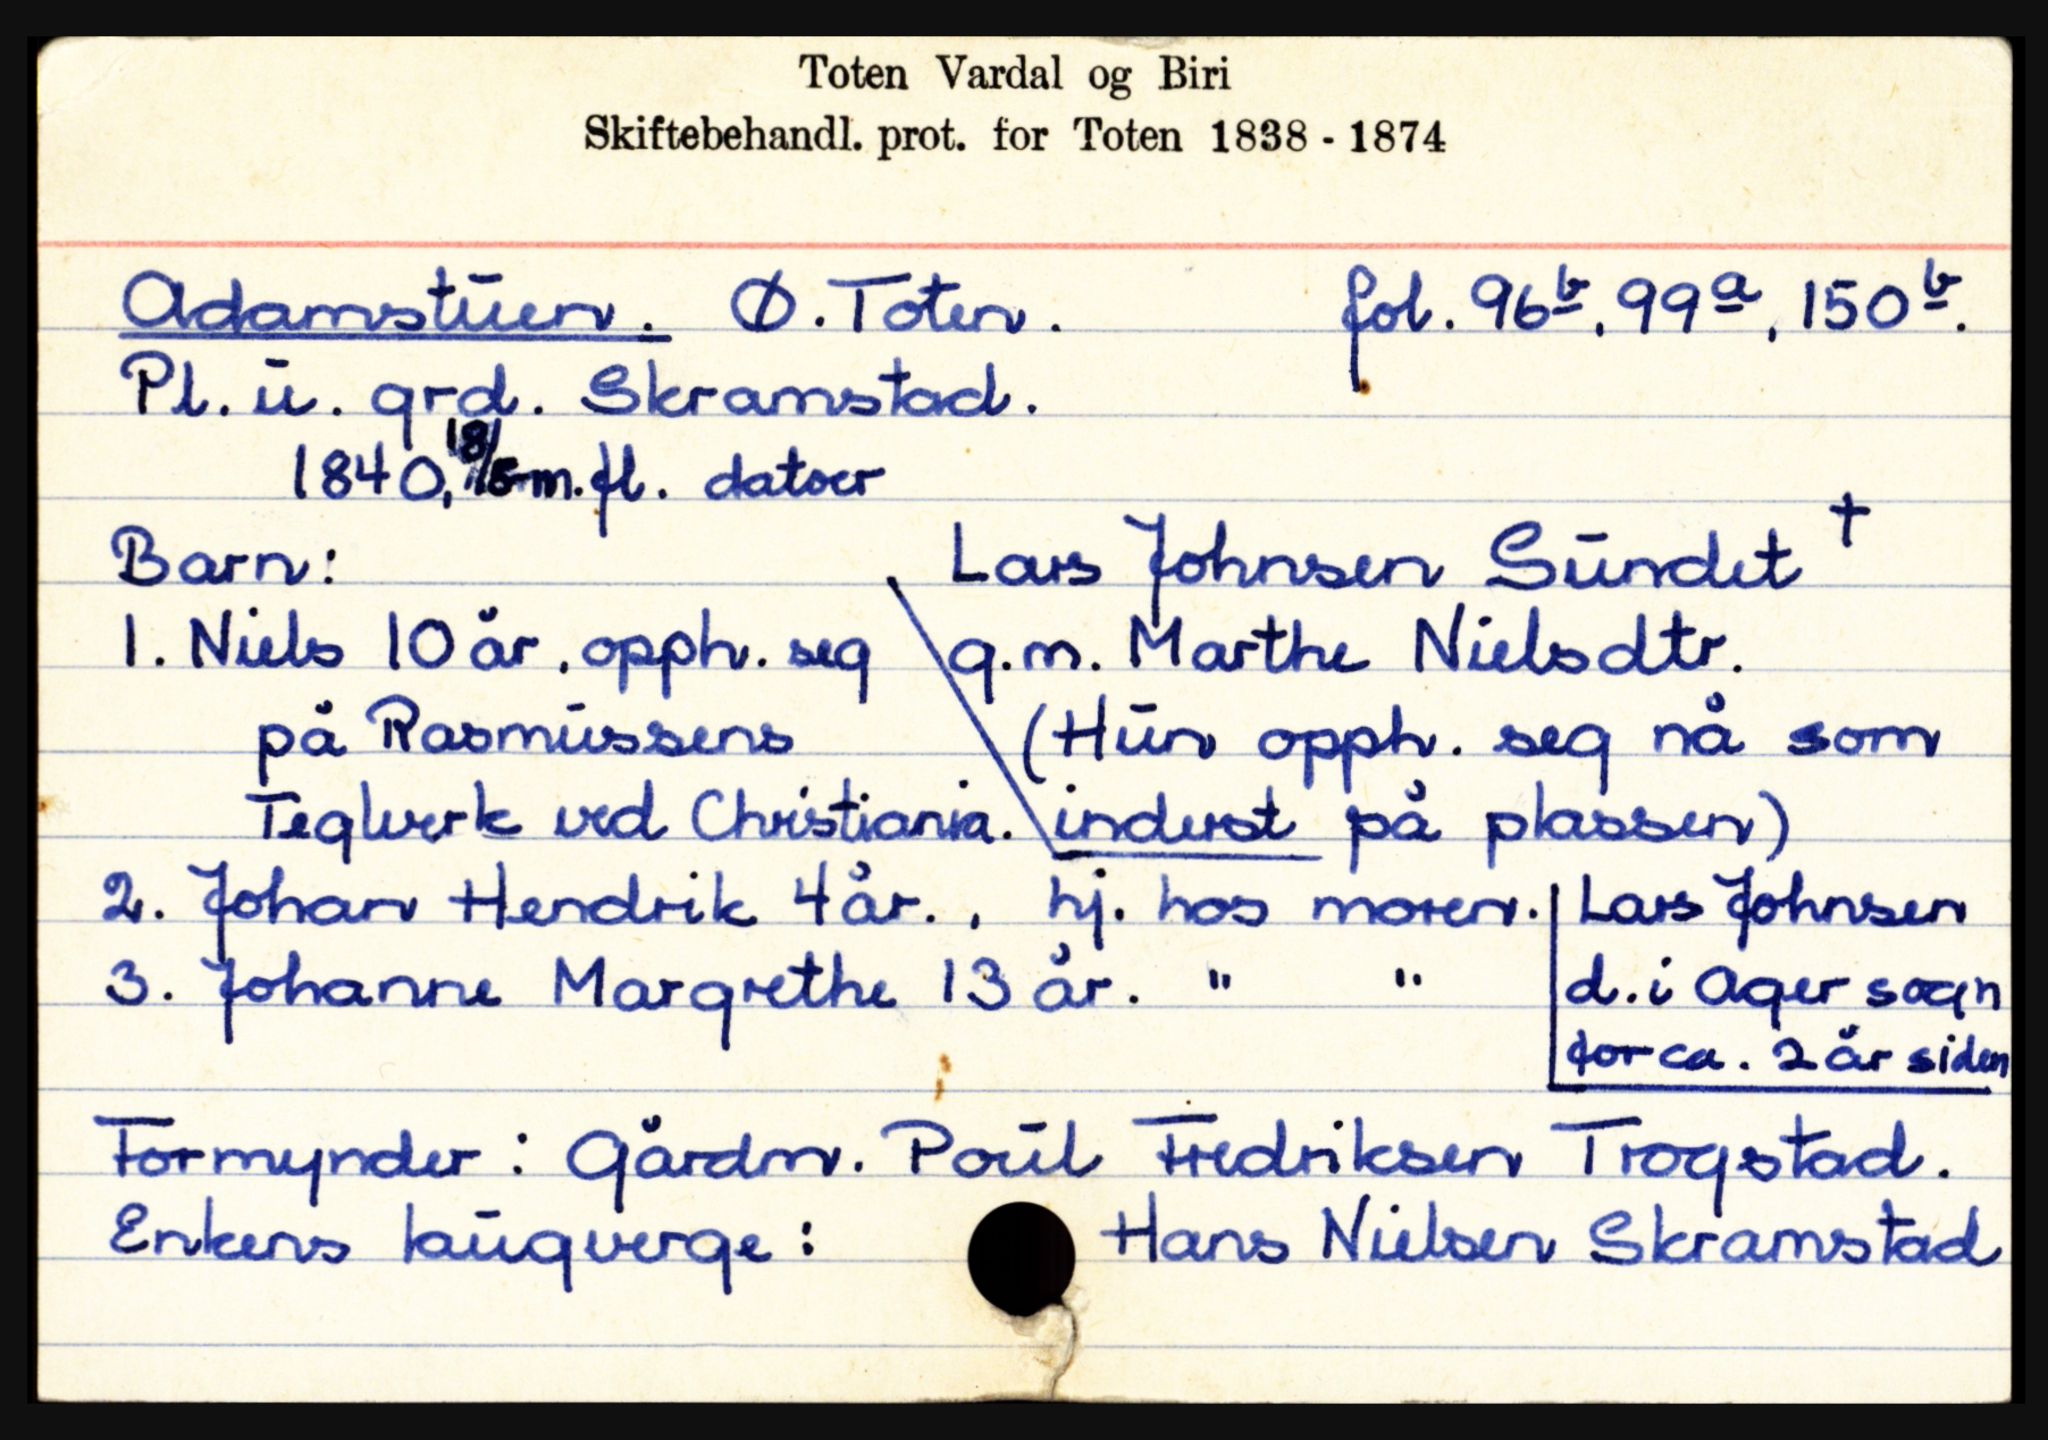 Toten Vardal og Biri
Skiftebehandl. prot. for Toten 1838 - 1874
Adamstuen. Ø. Toten. fol. 96b, 99a, 150b.
Pl. u. grd. Skramstad.
1840, 18/5 m. fl. datoer
Barn: Lars Johnsen Sundet †
1. Niels 10 år, opph. seg g.m. Marthe Nielsdtr.
på Rasmussens (Hun opph. seg nå som
Teglverk ved Christiania. inderst på plassen)
2. Johan Hendrik 4 år., hj. hos moren. Lars Johnsen
3. Johanne Margrethe 13 år. " " d. i Ager sogn
for ca. 2 år siden
Formynder: Gårdm. Poul Fredriksen Trogstad.
Enkens laugverge: Hans Nielsen Skramstad